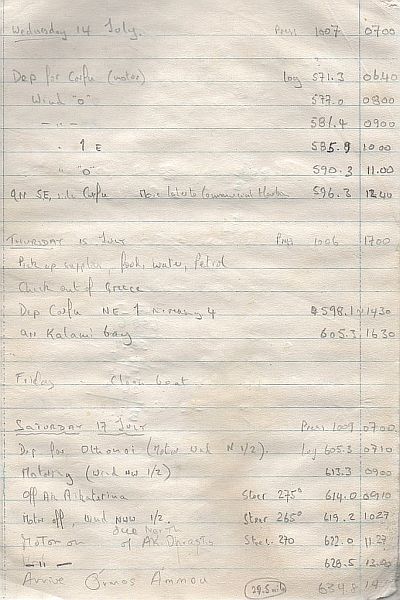 Wednesday 14 July. Press 1007 0700
Dep for Corfu (motor) log 571.3 0640
Wind "0" 577.0 0800
- " - 581.4 0900
" 1 E 585.9 1000
" "0" 590.3 11.00
an SE, side Corfu Move later to Commercial Harbour 596.3 1240
Thursday 15 July Press 1006 1700
Pick up supplies, food, water, Petrol
Check out of Greece
Dep Corfu NE-1 4 598.1 1430
an Kalami bay 605.3 1630
Friday Clean boat
Saturday 17 July Press 1009 0700
Dep for Othonoi (Motor Wind N 1/2). Log 605.3 0710
Motoring (wind NW 1/2) 613.3 0900
Off AK Aikaterina Steer 275° 614.0 0910
Motor off, wind NNW 1/2. Steer 265° 619.2 1027
due North
Motor on of AK Steer 270 622.0 11.27
- " - 628.5
Arrive Ormos Ammou 29.5 mile 634.8 14